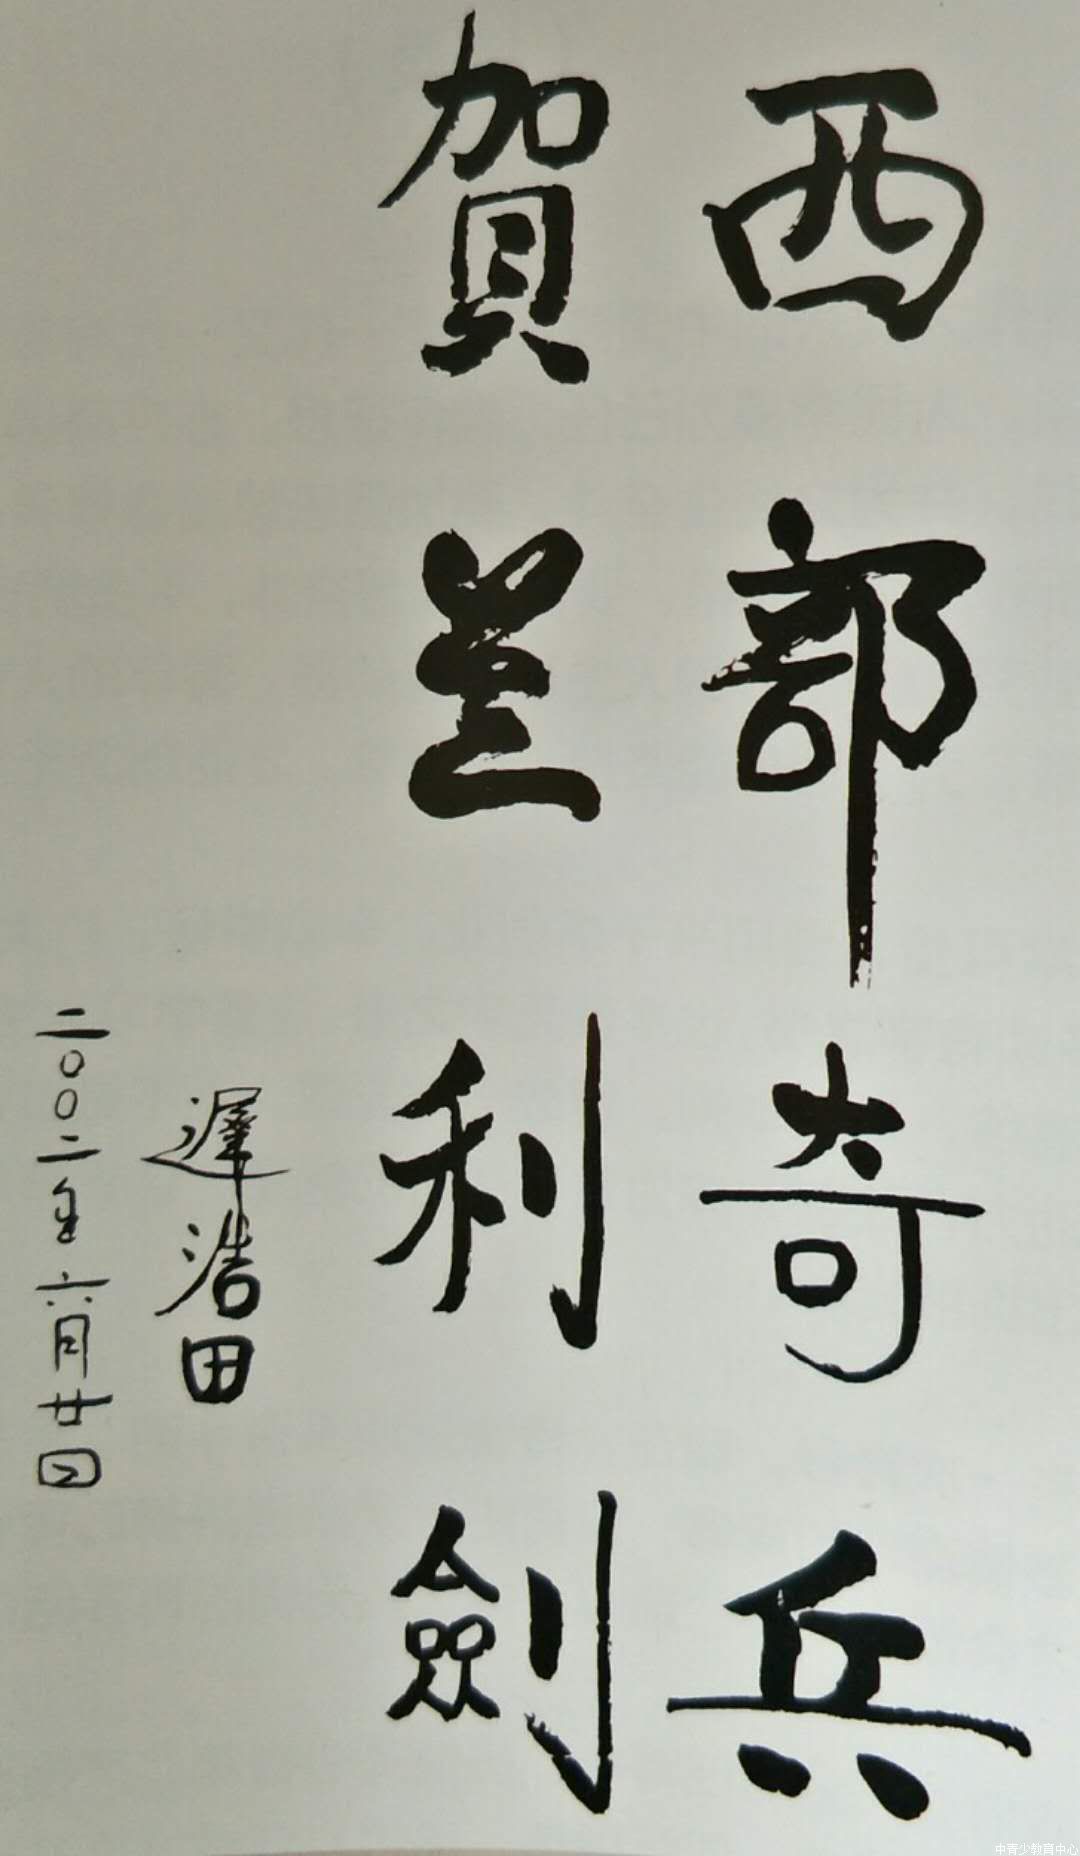 西部奇兵
賀兰利劍
遲浩田
二〇〇二年六月廿日
中青少教育中心